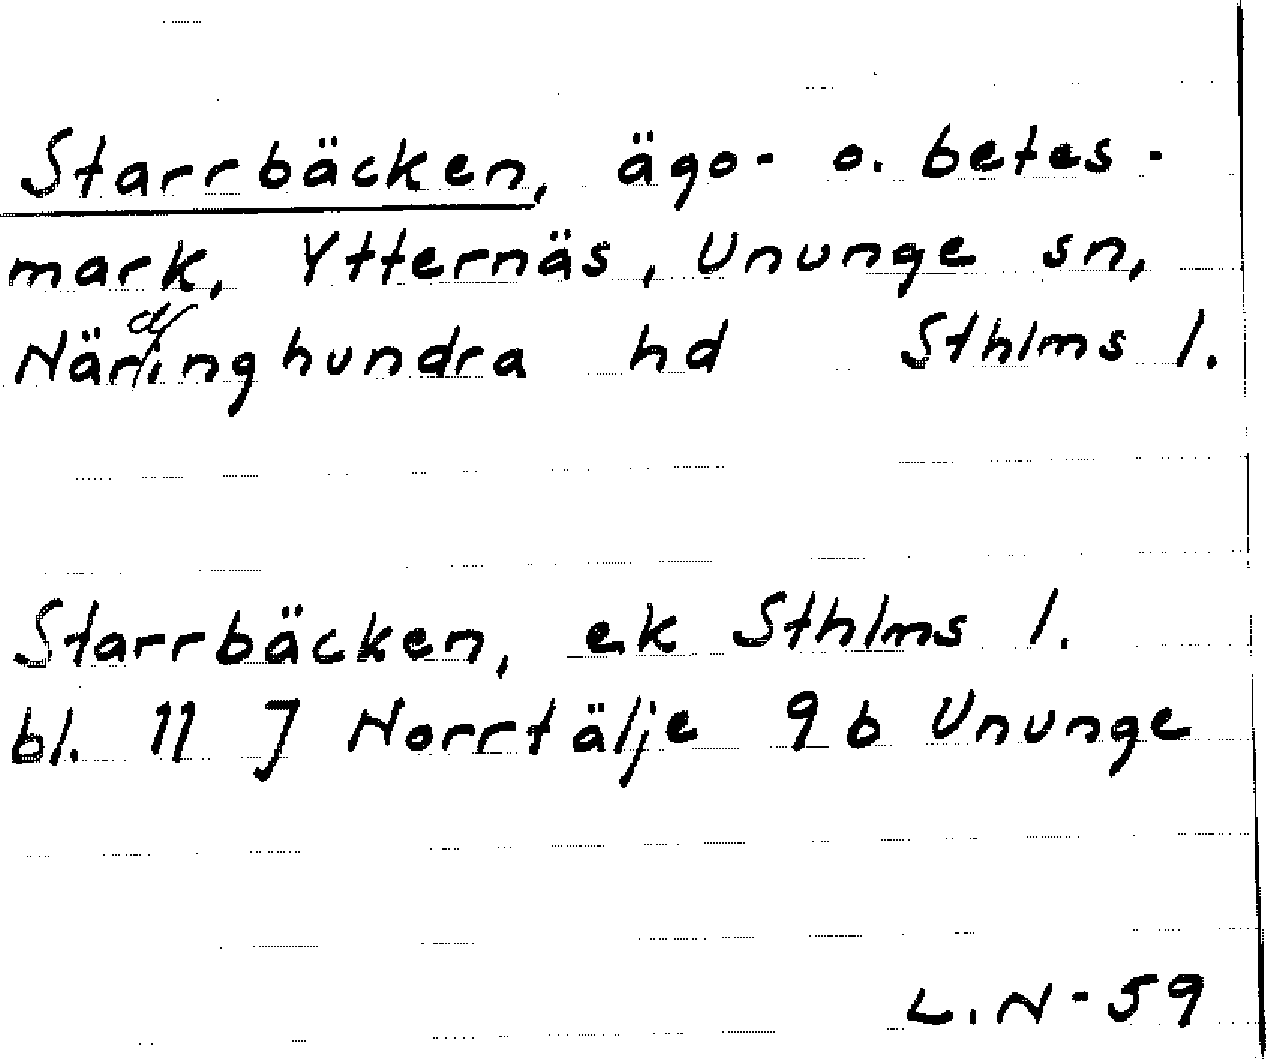 Starrbäcken, ägo- o. betes-
mark, Ytternäs, Ununge sn,
Närdinghundra hd Sthlms l.
Starrbäcken, ek Sthlms l.
bl. 11 J Norrtälje 9b Ununge
L.N-59